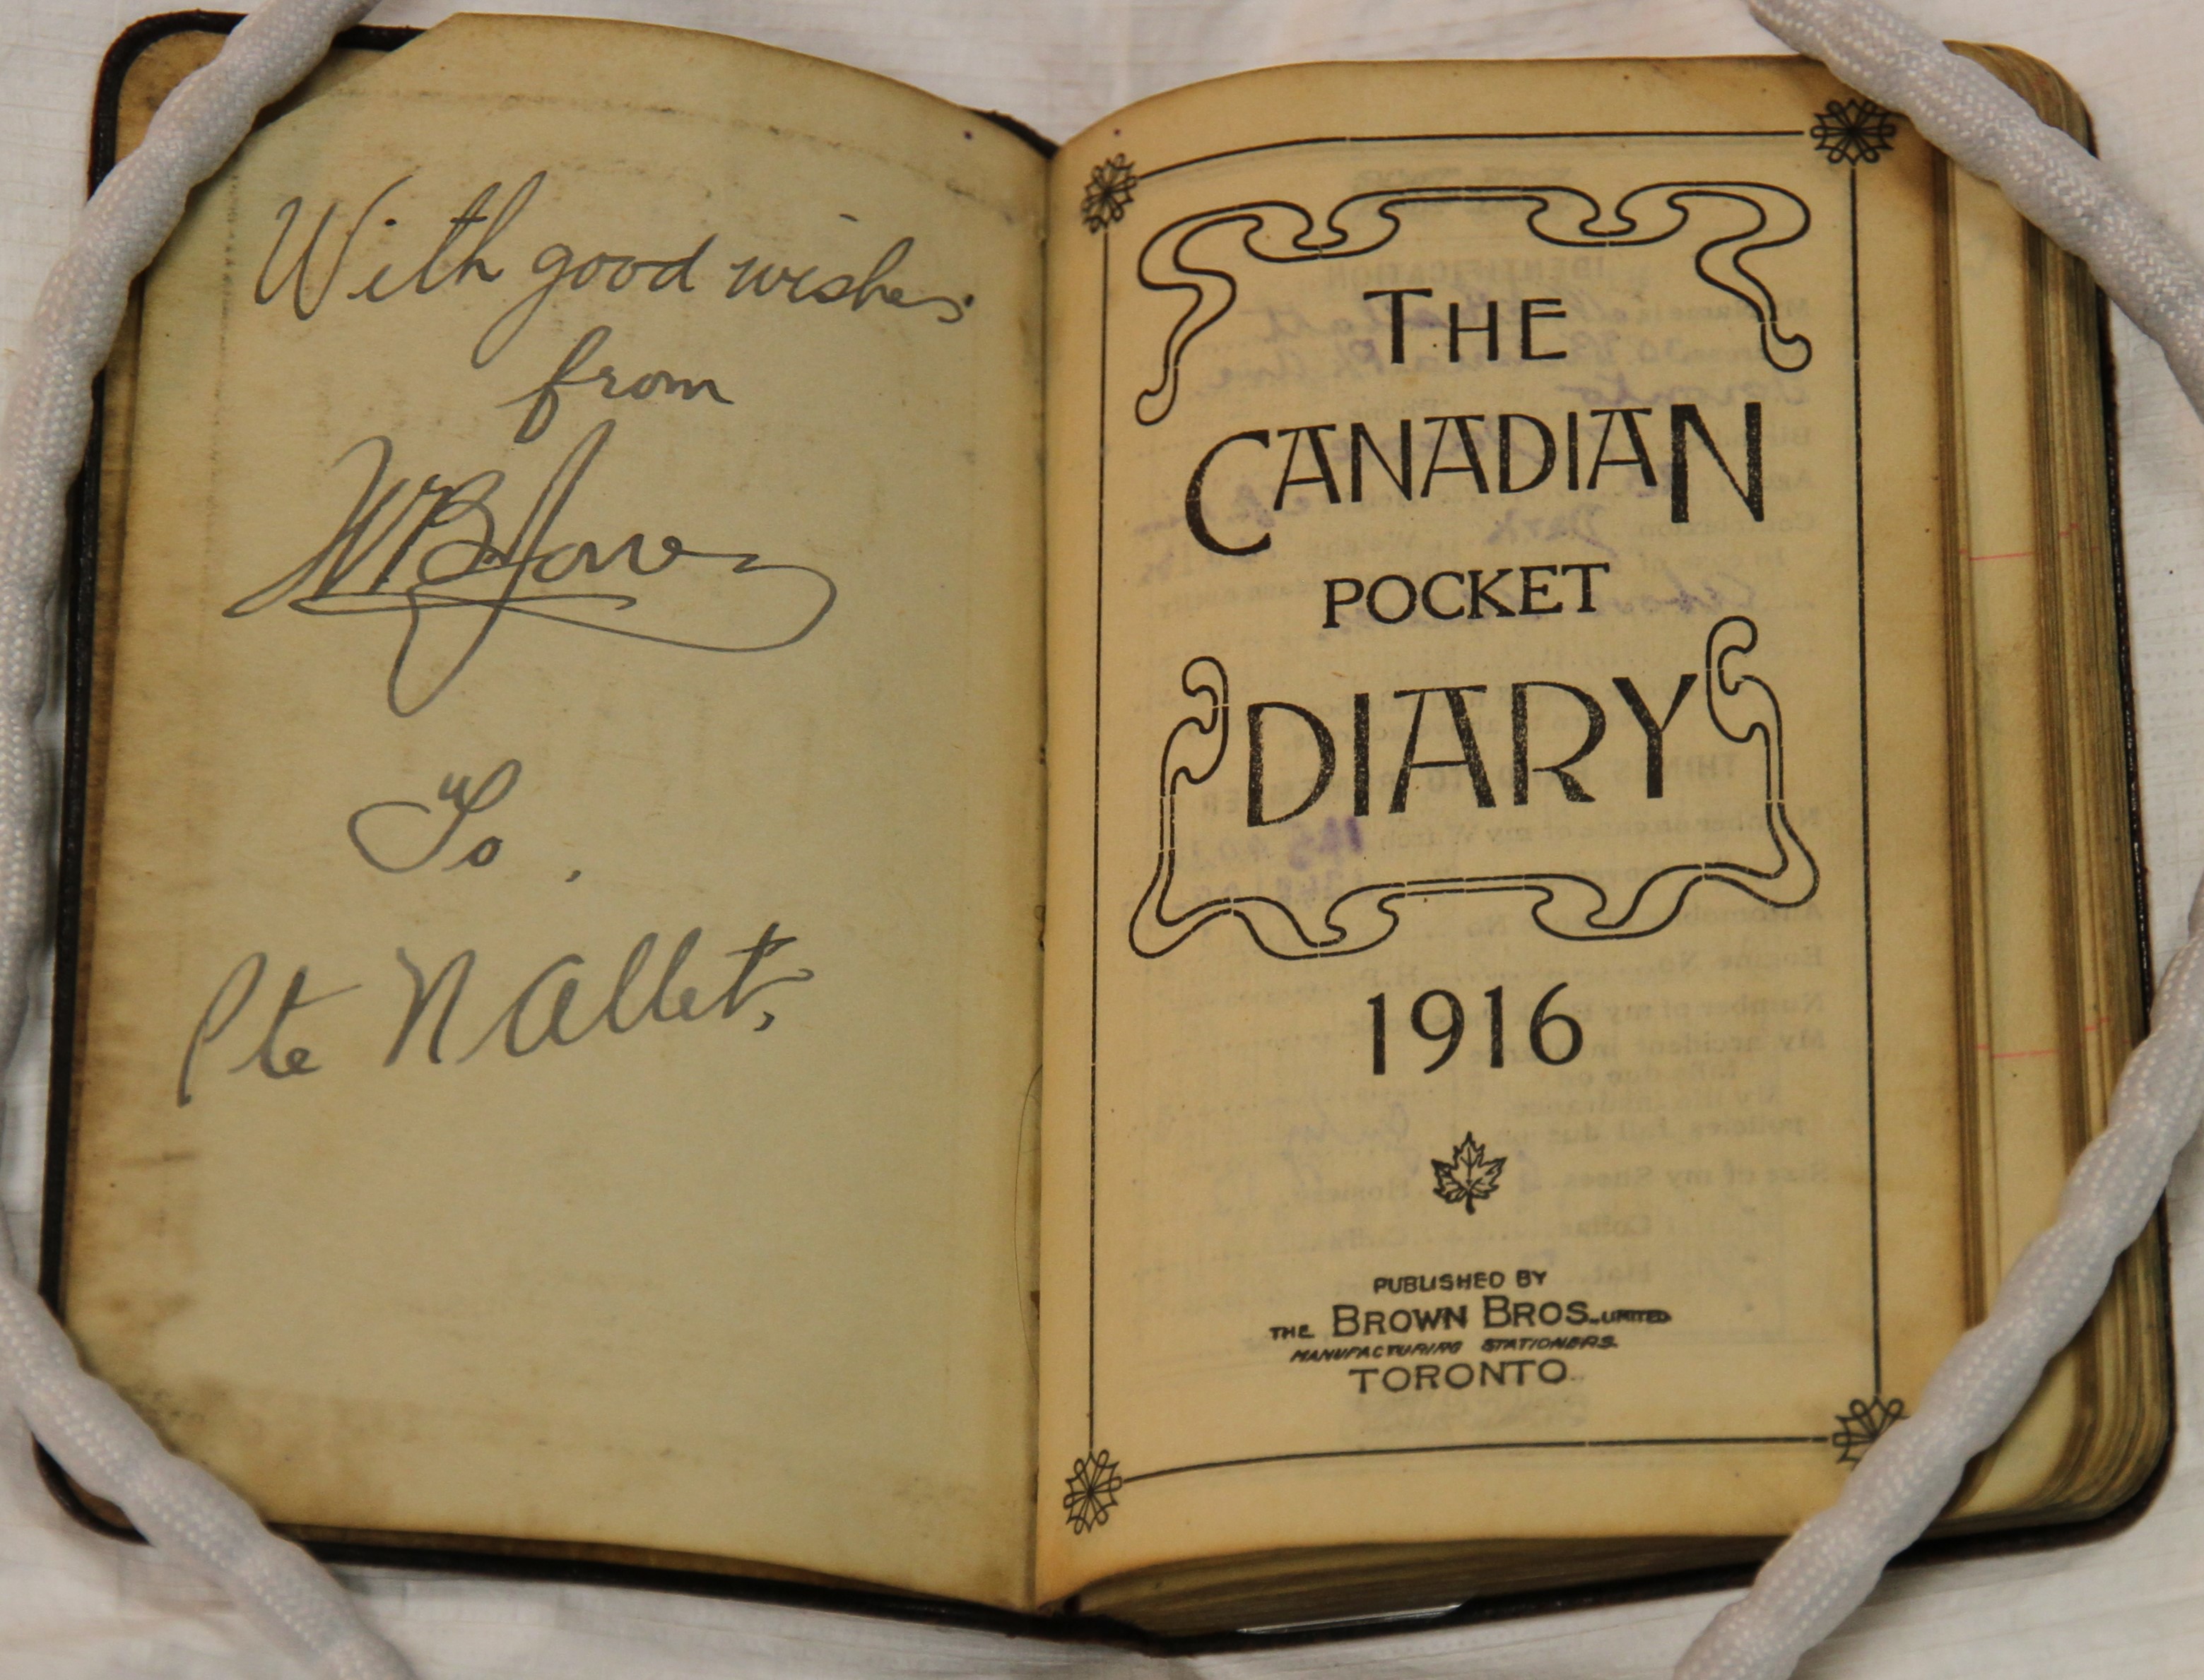 With good wishes
from
WB Jones
To
Pte N Allet,
THE
CANADIAN
POCKET
DIARY
1916
PUBLISHED BY
THE BROWN BROS. LIMITED
MANUFACTURING STATIONERS.
TORONTO